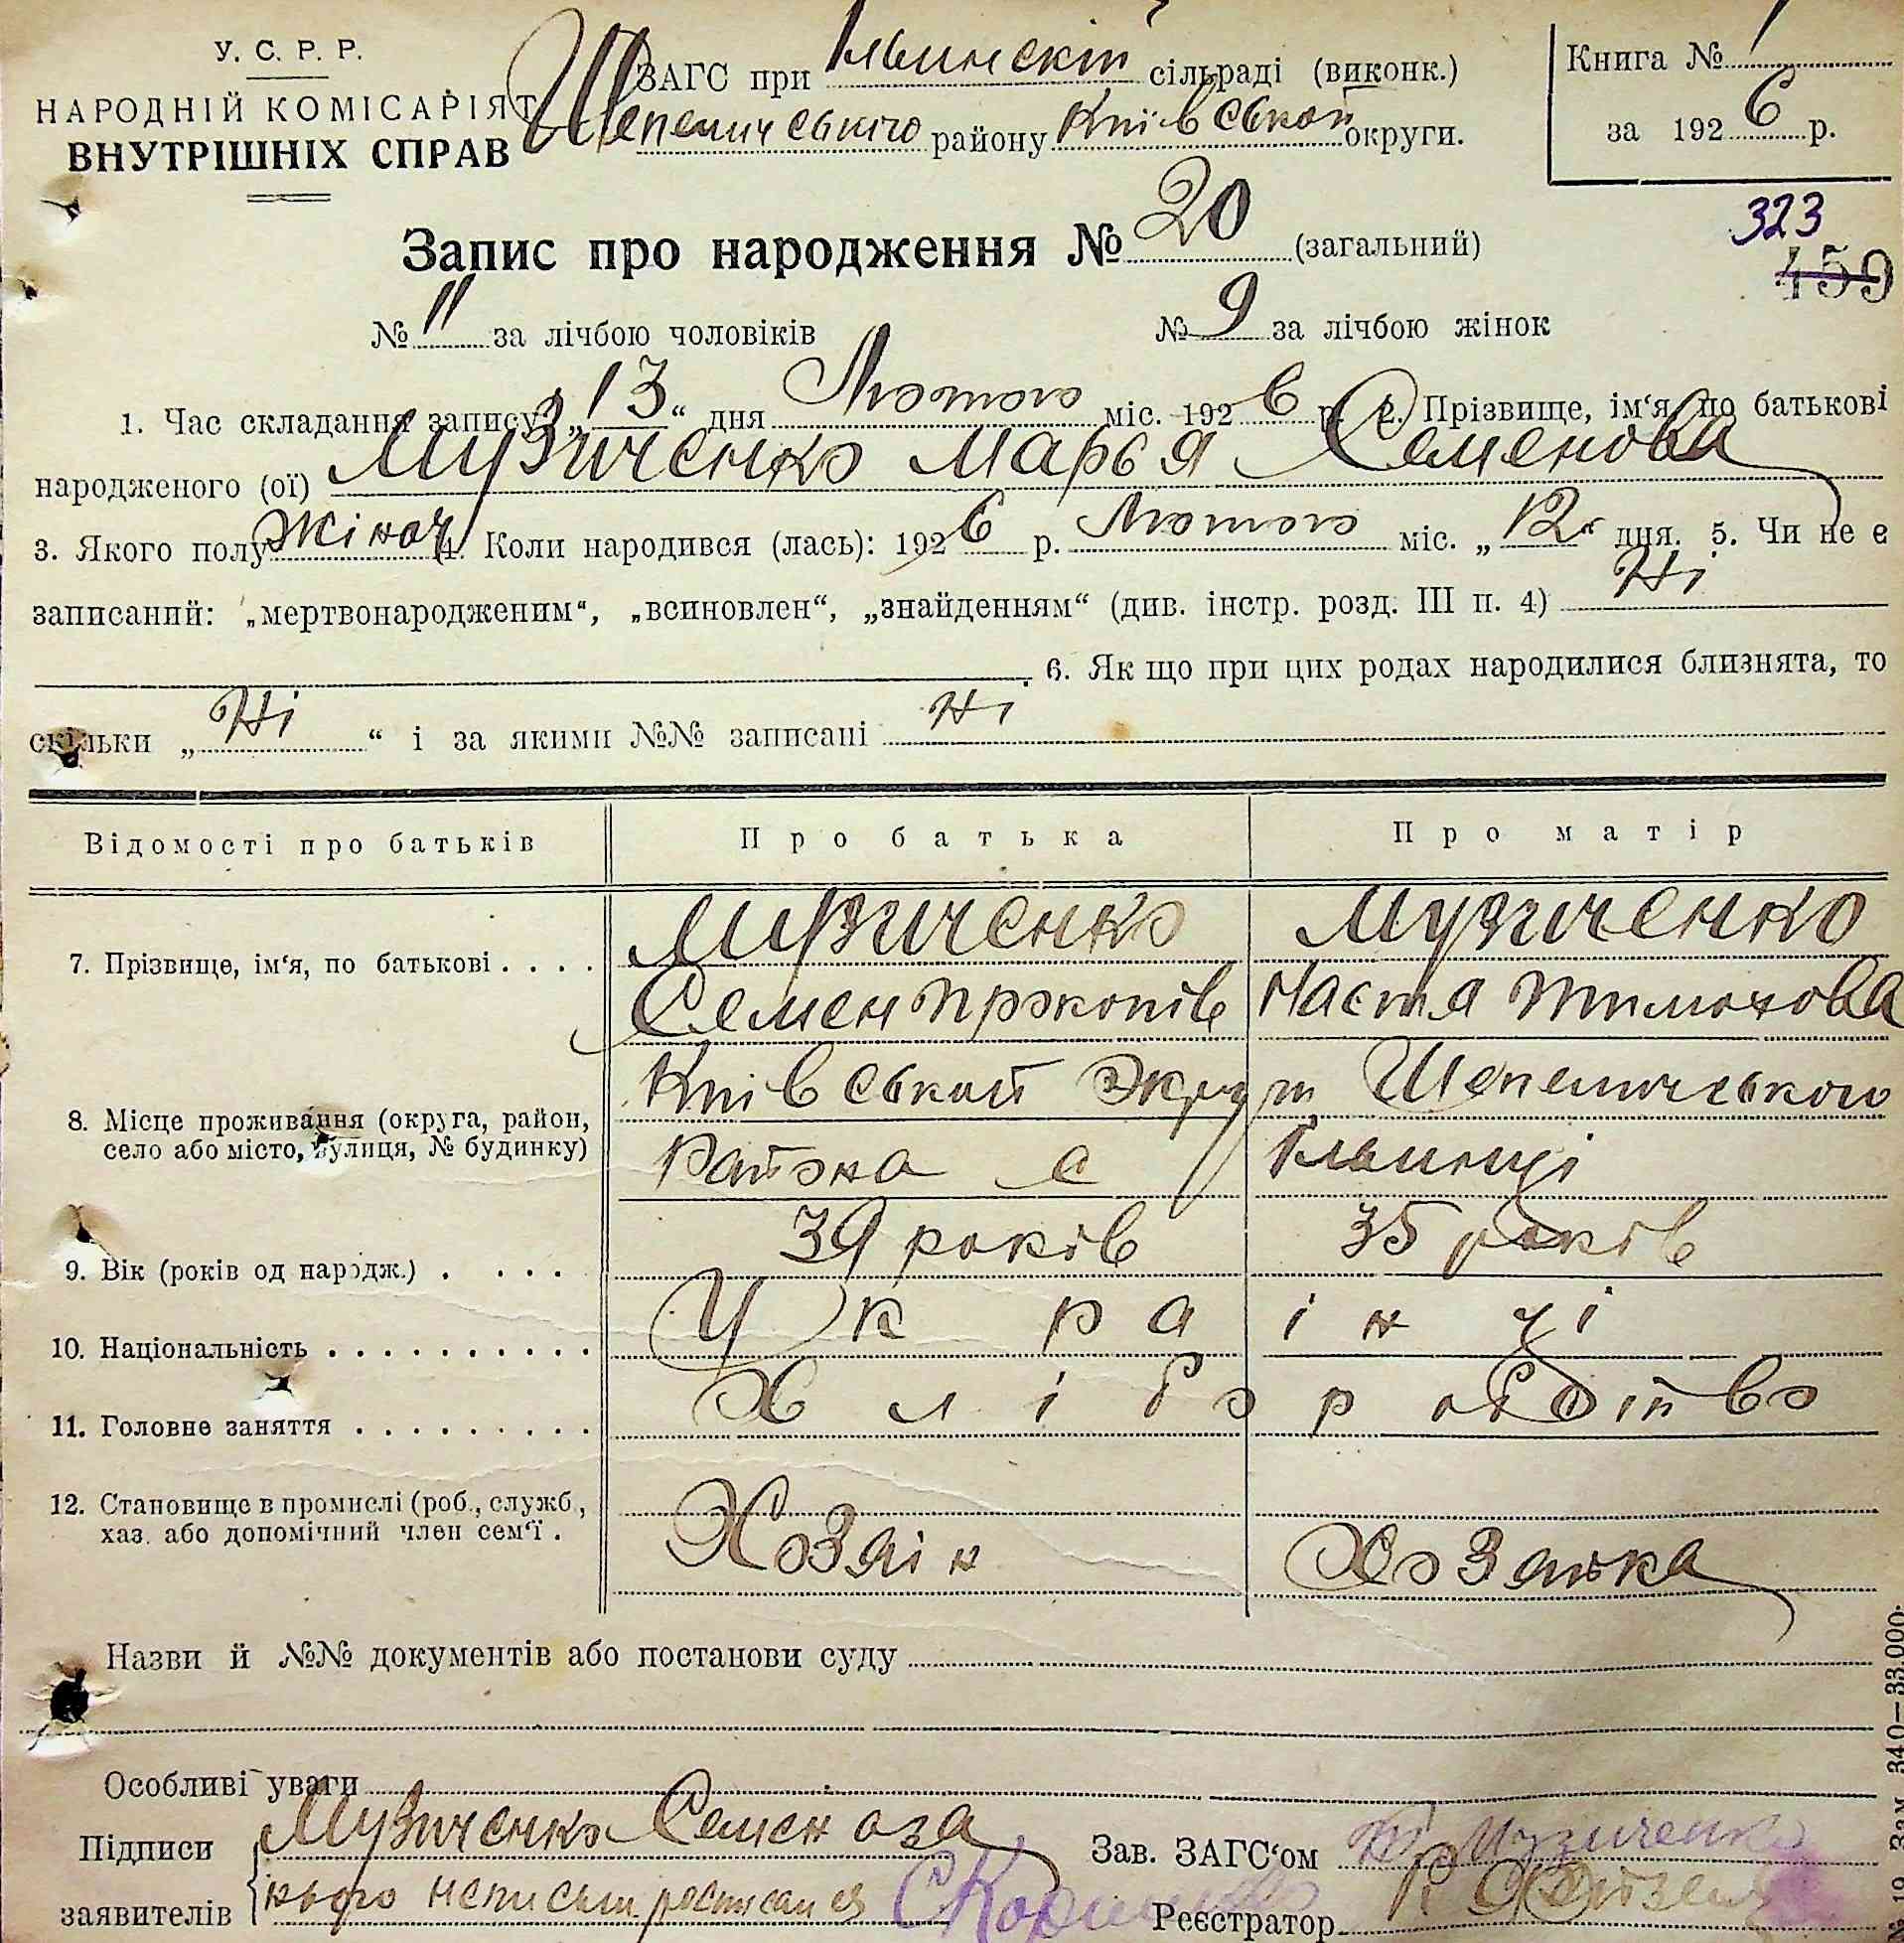 У. С. Р. Р.
НАРОДНІЙ КОМІСАРІЯТ
ВНУТРІШНІХ СПРАВ
ЗАГС при сільраді (виконк.)
Шепелицького району Київськой округи.
Книга № 1
за 1926 р.
323
459
Запис про народження № 20 (загальний)
№ 11 за лічбою чоловіків № 9 за лічбою жінок
1. Час складання запису „13“ дня Лютого міс. 1926 р. 2. Прізвище, ім‘я, по батькові
народженого (ої) Музиченко Марья Семенова
3. Якого полу жіноч 4. Коли народився (лась): 1926 р. Лютого міс. „12“ дня. 5. Чи не є
записаний: „мертвонародженим“, „всиновлен“, „знайденням“ (див. інстр. розд. III п. 4) Ні
6. Як що при цих родах народилися близнята, то
скільки „Ні“ і за якими №№ записані Ні
Відомості про батьків Про батька Про матір
7. Прізвище, ім‘я, по батькові . . . . Музиченко Музиченко
Семен Прокопів Настя Тимохова
8. Місце проживання (округа, район, село або місто, вулиця, № будинку) Київськой Округи Шепелицького
Района с
9. Вік (років од народж.) . . . . 39 років 35 років
10. Національність . . . . . . . . . . Українці
11. Головне заняття . . . . . . . . . Хліборобство
12. Становище в промислі (роб., служб., хаз. або допомічний член сем‘ї . Хозяін Хозяйка
Назви й №№ документів або постанови суду
Особливі уваги
Підписи Музиченко Семен а за
заявителів нього
Зав. ЗАГС‘ом Музиченко
Реєстратор